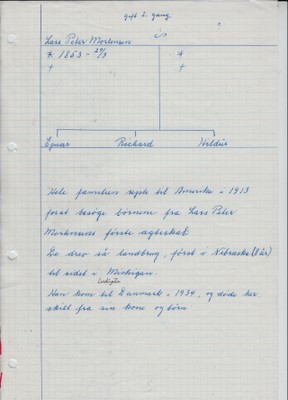 gift 2. gang
Lars Peter Mortensen
* 1853 - 29/3 *
+ +
Egnar Richard Valdis
Hele familien rejste til Amerika - 1913
forat besøge børnene fra Lars Peter
Mortensens første ægteskab.
De drev så landbrug, først i Nebraska (1 år)
til sidst i Michigan.
Ludington
Han kom til Danmark - 1934, og døde her
skilt fra sin kone og børn